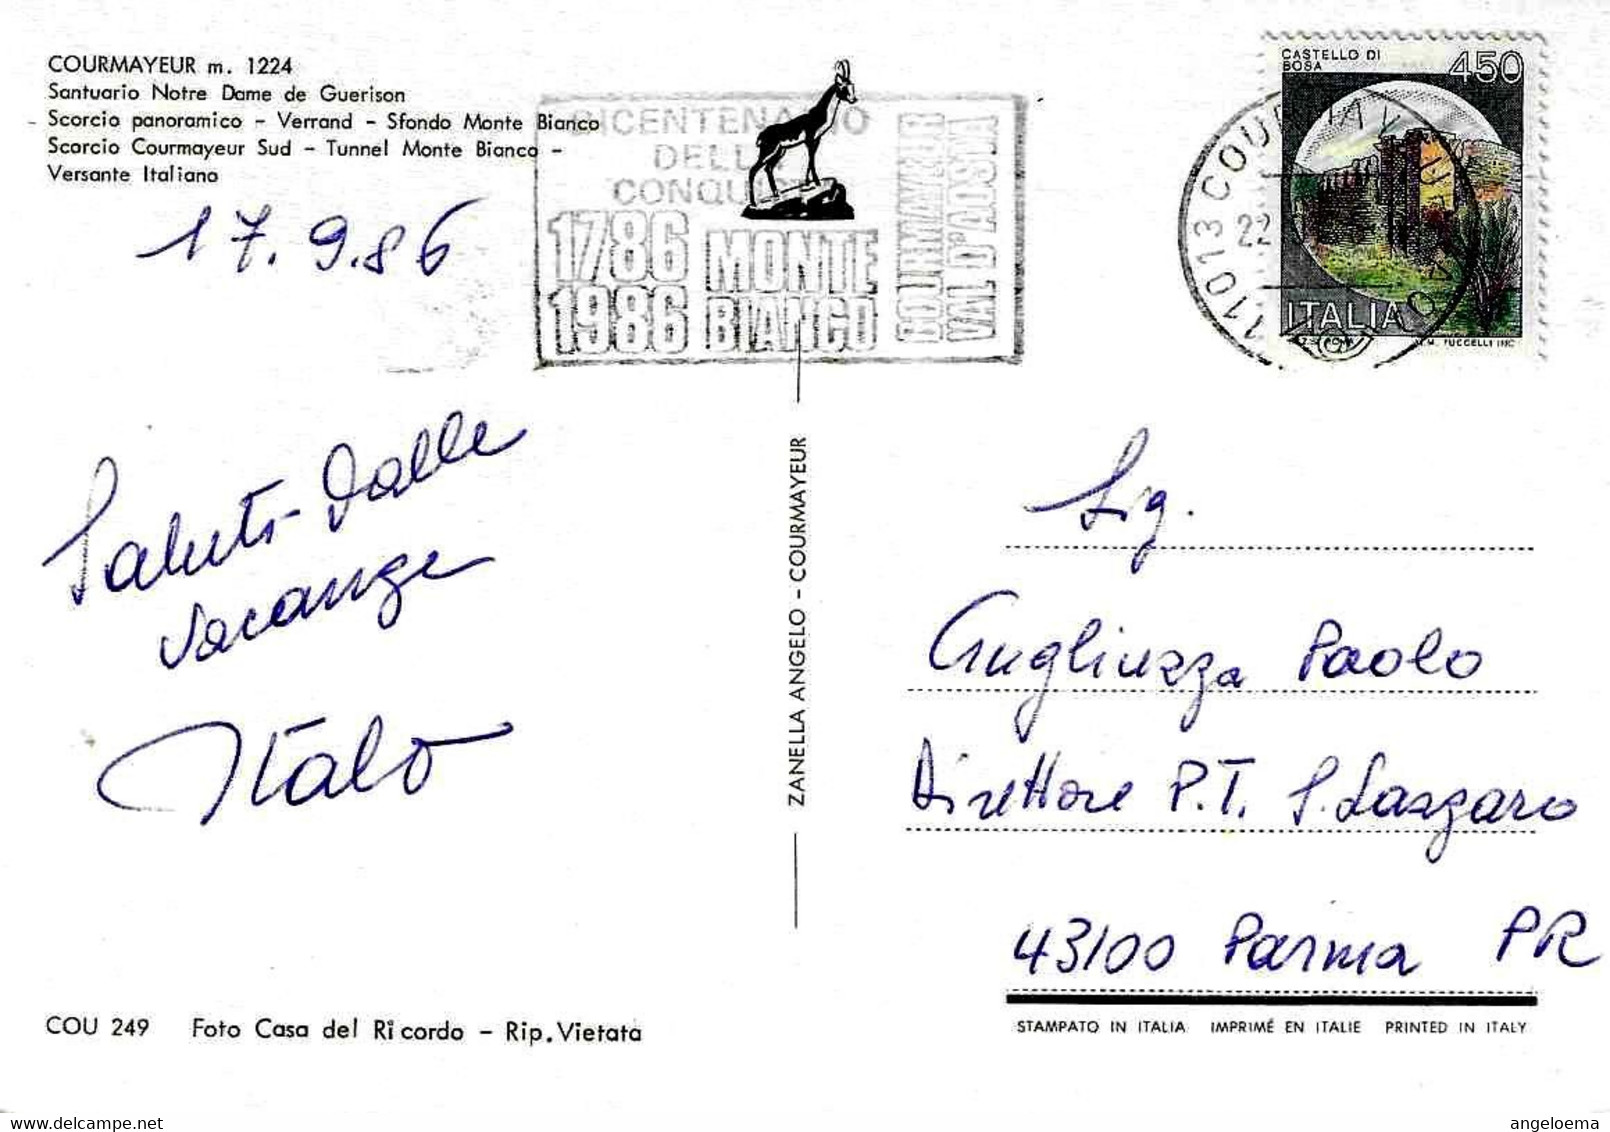 COURMAYEUR m. 1224
Santuario Notre Dame de Guerison
Scorcio panoramico - Verrand - Sfondo Monte Bianco
Scorcio Courmayeur Sud - Tunnel Monte Bianco -
Versante Italiano
17.9.86
BICENTENARIO
DELLA
CONQU
1786
1986
MONTE
BIANCO
COURMAYEUR
VAL D'AOSTA
11013 COURMAYEUR
22
CASTELLO DI
BOSA
450
ITALIA
Saluti dalle
vacanze
Italo
ZANELLA ANGELO - COURMAYEUR
Sig.
Gugliuzza Paolo
Direttore P.T. S. Lazzaro
43100 Parma PR
COU 249 Foto Casa del Ricordo - Rip. Vietata
STAMPATO IN ITALIA IMPRIMÉ EN ITALIE PRINTED IN ITALY
delcampe.net
angeloema